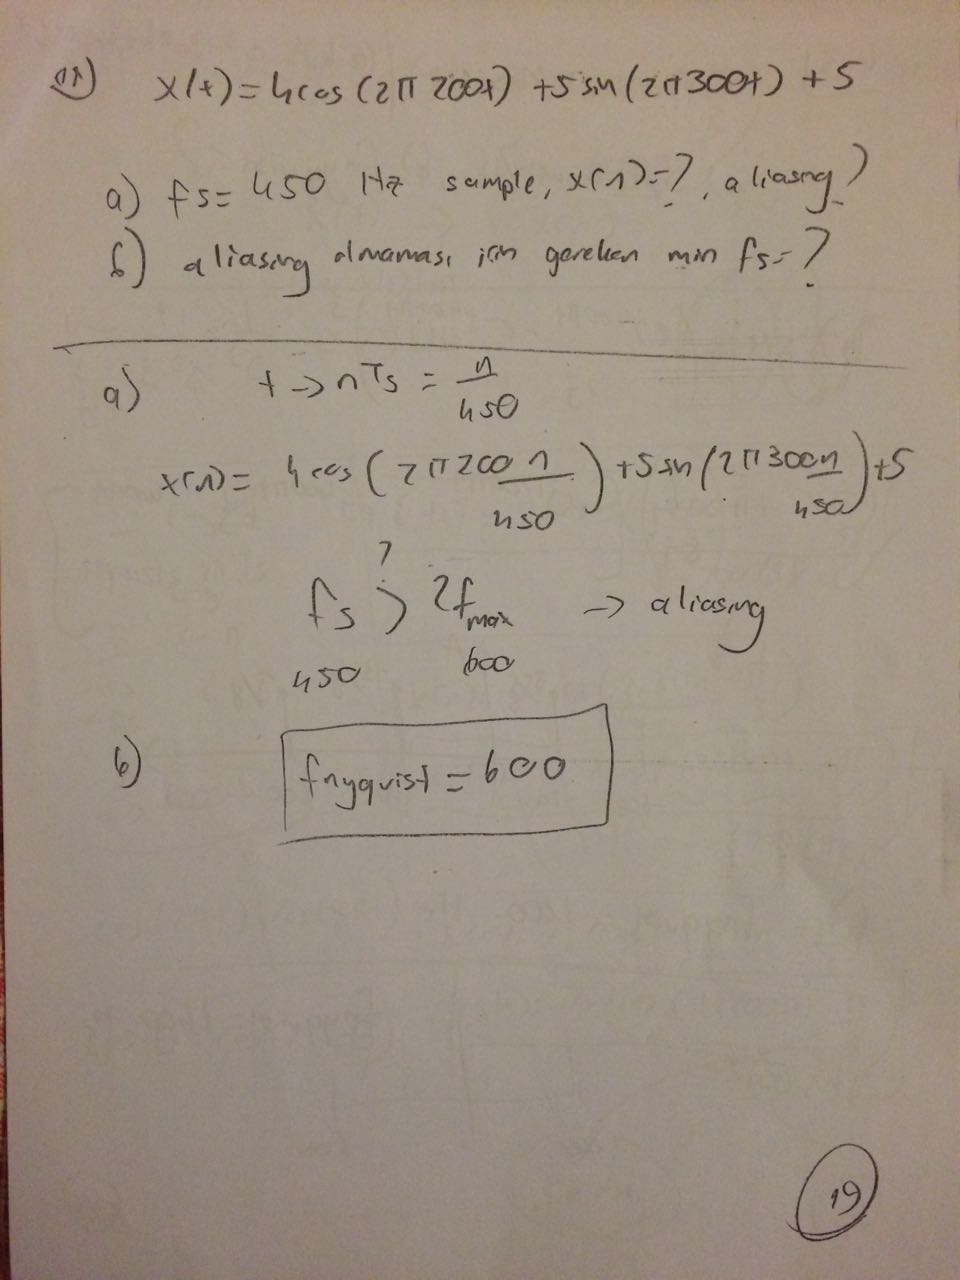 11) x(t)=4cos(2π200t)+5sin(2π300t)+5
a) fs=450 Hz sample, x(n)=?, aliasing?
b) aliasing olmaması için gereken min fs=?
a) t→nTs = n/450
x(n)= 4cos(2π200n/450)+5sin(2π300n/450)+5
?
fs > 2fmax → aliasing
450 600
b) fnyquist = 600
19